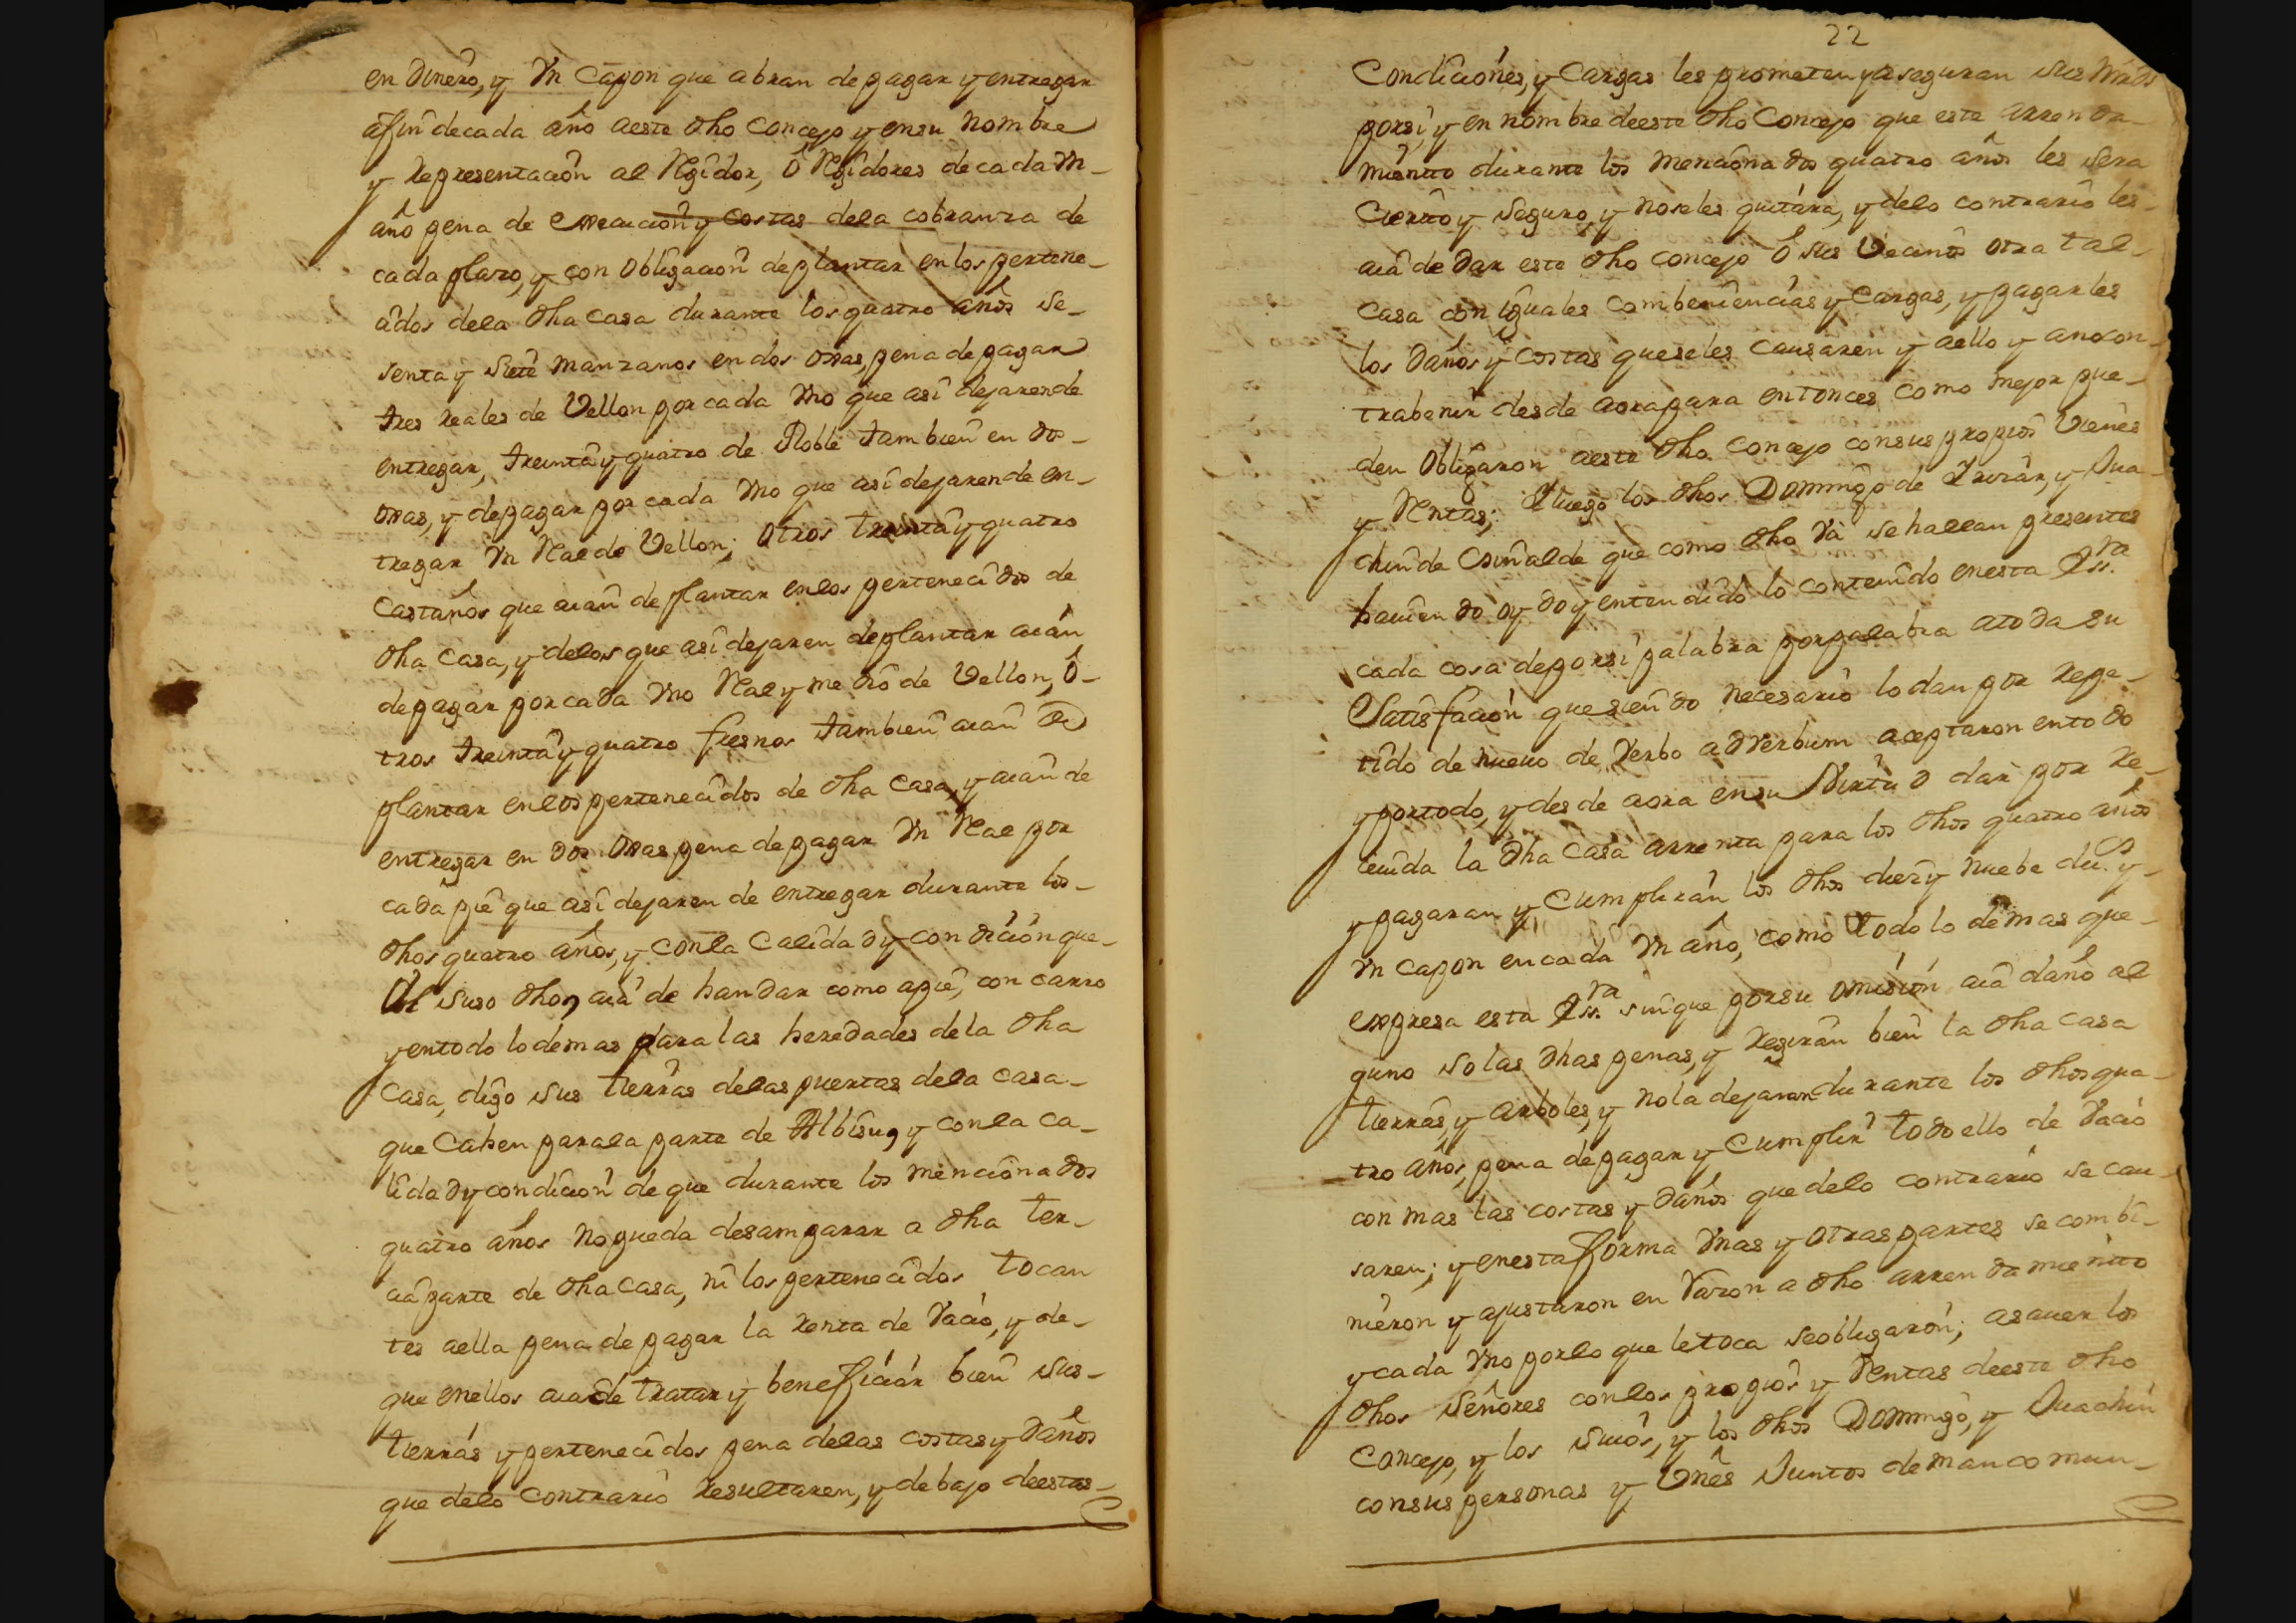 en Dinero, y Vn Capon que abran de pagar y entregar
afin de cada año aeste dho Concejo y ensu nombre
y Representacion al Regidor, ô Regidores de cada Vn
año pena de execucion y costas dela cobranza de
cada plazo, y con Obligacion de plantar en los pertene-
cidos dela dha casa durante los quatro años se-
senta y siete manzanos en dos oxas, pena de pagar
tres reales de Vellon por cada Vno que asi dejaren de
entregar, treinta y quatro de Roble tambien en dos
oxas, y de pagar por cada Vno que asi dejaren de en-
tregar Vn Real de Vellon; Otros treinta y quatro
Castaños que aian de plantar enlos pertenecidos de
dha Casa, y delos que asi dejaren de plantar aian
de pagar por cada Vno Real y medio de Vellon, ô-
tros treinta y quatro fresnos tambien aian de
plantar enlos pertenecidos de dha Casa, y aian de
entregar en dos oxas, pena de pagar Vn Real por
cada pie que asi dejaren de entregar durante los
dhos quatro años, y conla Calidad y condicion que
el suso dho, aia de handar como a pie, con carro
y entodo lo demas para las heredades dela dha
Casa, digo sus tierras delas puertas dela casa
que Caben para la parte de Albisu, y conla ca-
lidad y condicion de que durante los mencionados
quatro años no pueda desamparar a dha ter-
cia parte de dha Casa, ni los pertenecidos tocan
tes aella pena de pagar la renta de Vacio, y de
que enellos aia de tratar y beneficiar bien sus
tierras y pertenecidos pena delas costas y daños
que delo contrario resultaren, y debajo de estas
22
Condiciones, y Cargas les prometen y aseguran sus mrds
porsi, y en nombre deeste dho Concejo que este arrenda
miento durante los mencionados quatro años les sera
Cierto y Seguro, y nose les quitara, y delo contrario les
aia de dar este dho concejo ô sus Vecinos otra tal
Casa con iguales combeniencias y Cargas, y pagarles
los daños y costas que seles causaren y aello y anocon
trabenir desde aora para entonces como mejor pue-
den Obligaron aeste dho Concejo consus propios Vienes
y Rentas; y luego los dhos Domingo de Yrurar, y Jua
chin de Osinalde que como dho Va se hallan presentes
haviendo oydo y entendido lo contenido enesta Ess.ra
cada cosa deporsi palabra por palabra atoda su
Satisfacion que siendo necesario lo dan por repe-
tido de nuevo de Verbo adVerbum aceptaron entodo
y portodo, y desde aora ensu Virtud dan por re-
cevida la dha Casa arrenta para los dhos quatro años
y pagaran y Cumpliran los dhos diez y nuebe du.s y
Vn capon en cada Vn año, como todo lo demas que
expresa esta Ess.ra sin que por su omision aia daño al
guno so las dhas penas, y regiran bien la dha casa
tierras, y arboles, y nola dejaran durante los dhos qua
tro años, pena de pagar y Cumplir todo ello de Vacio
con mas las costas y daños que delo contrario se cau
saren; y enesta forma Vnas y otras partes se combi-
nieron y ajustaron en Razon a dho arrendamiento
y cada Vno porlo que letoca seobligaron; asaver los
dhos Señores conlos propios y Rentas deeste dho
Concejo, y los suios, y los dhos Domingo, y Juachin
consus personas y Vnes Juntos de mancomun